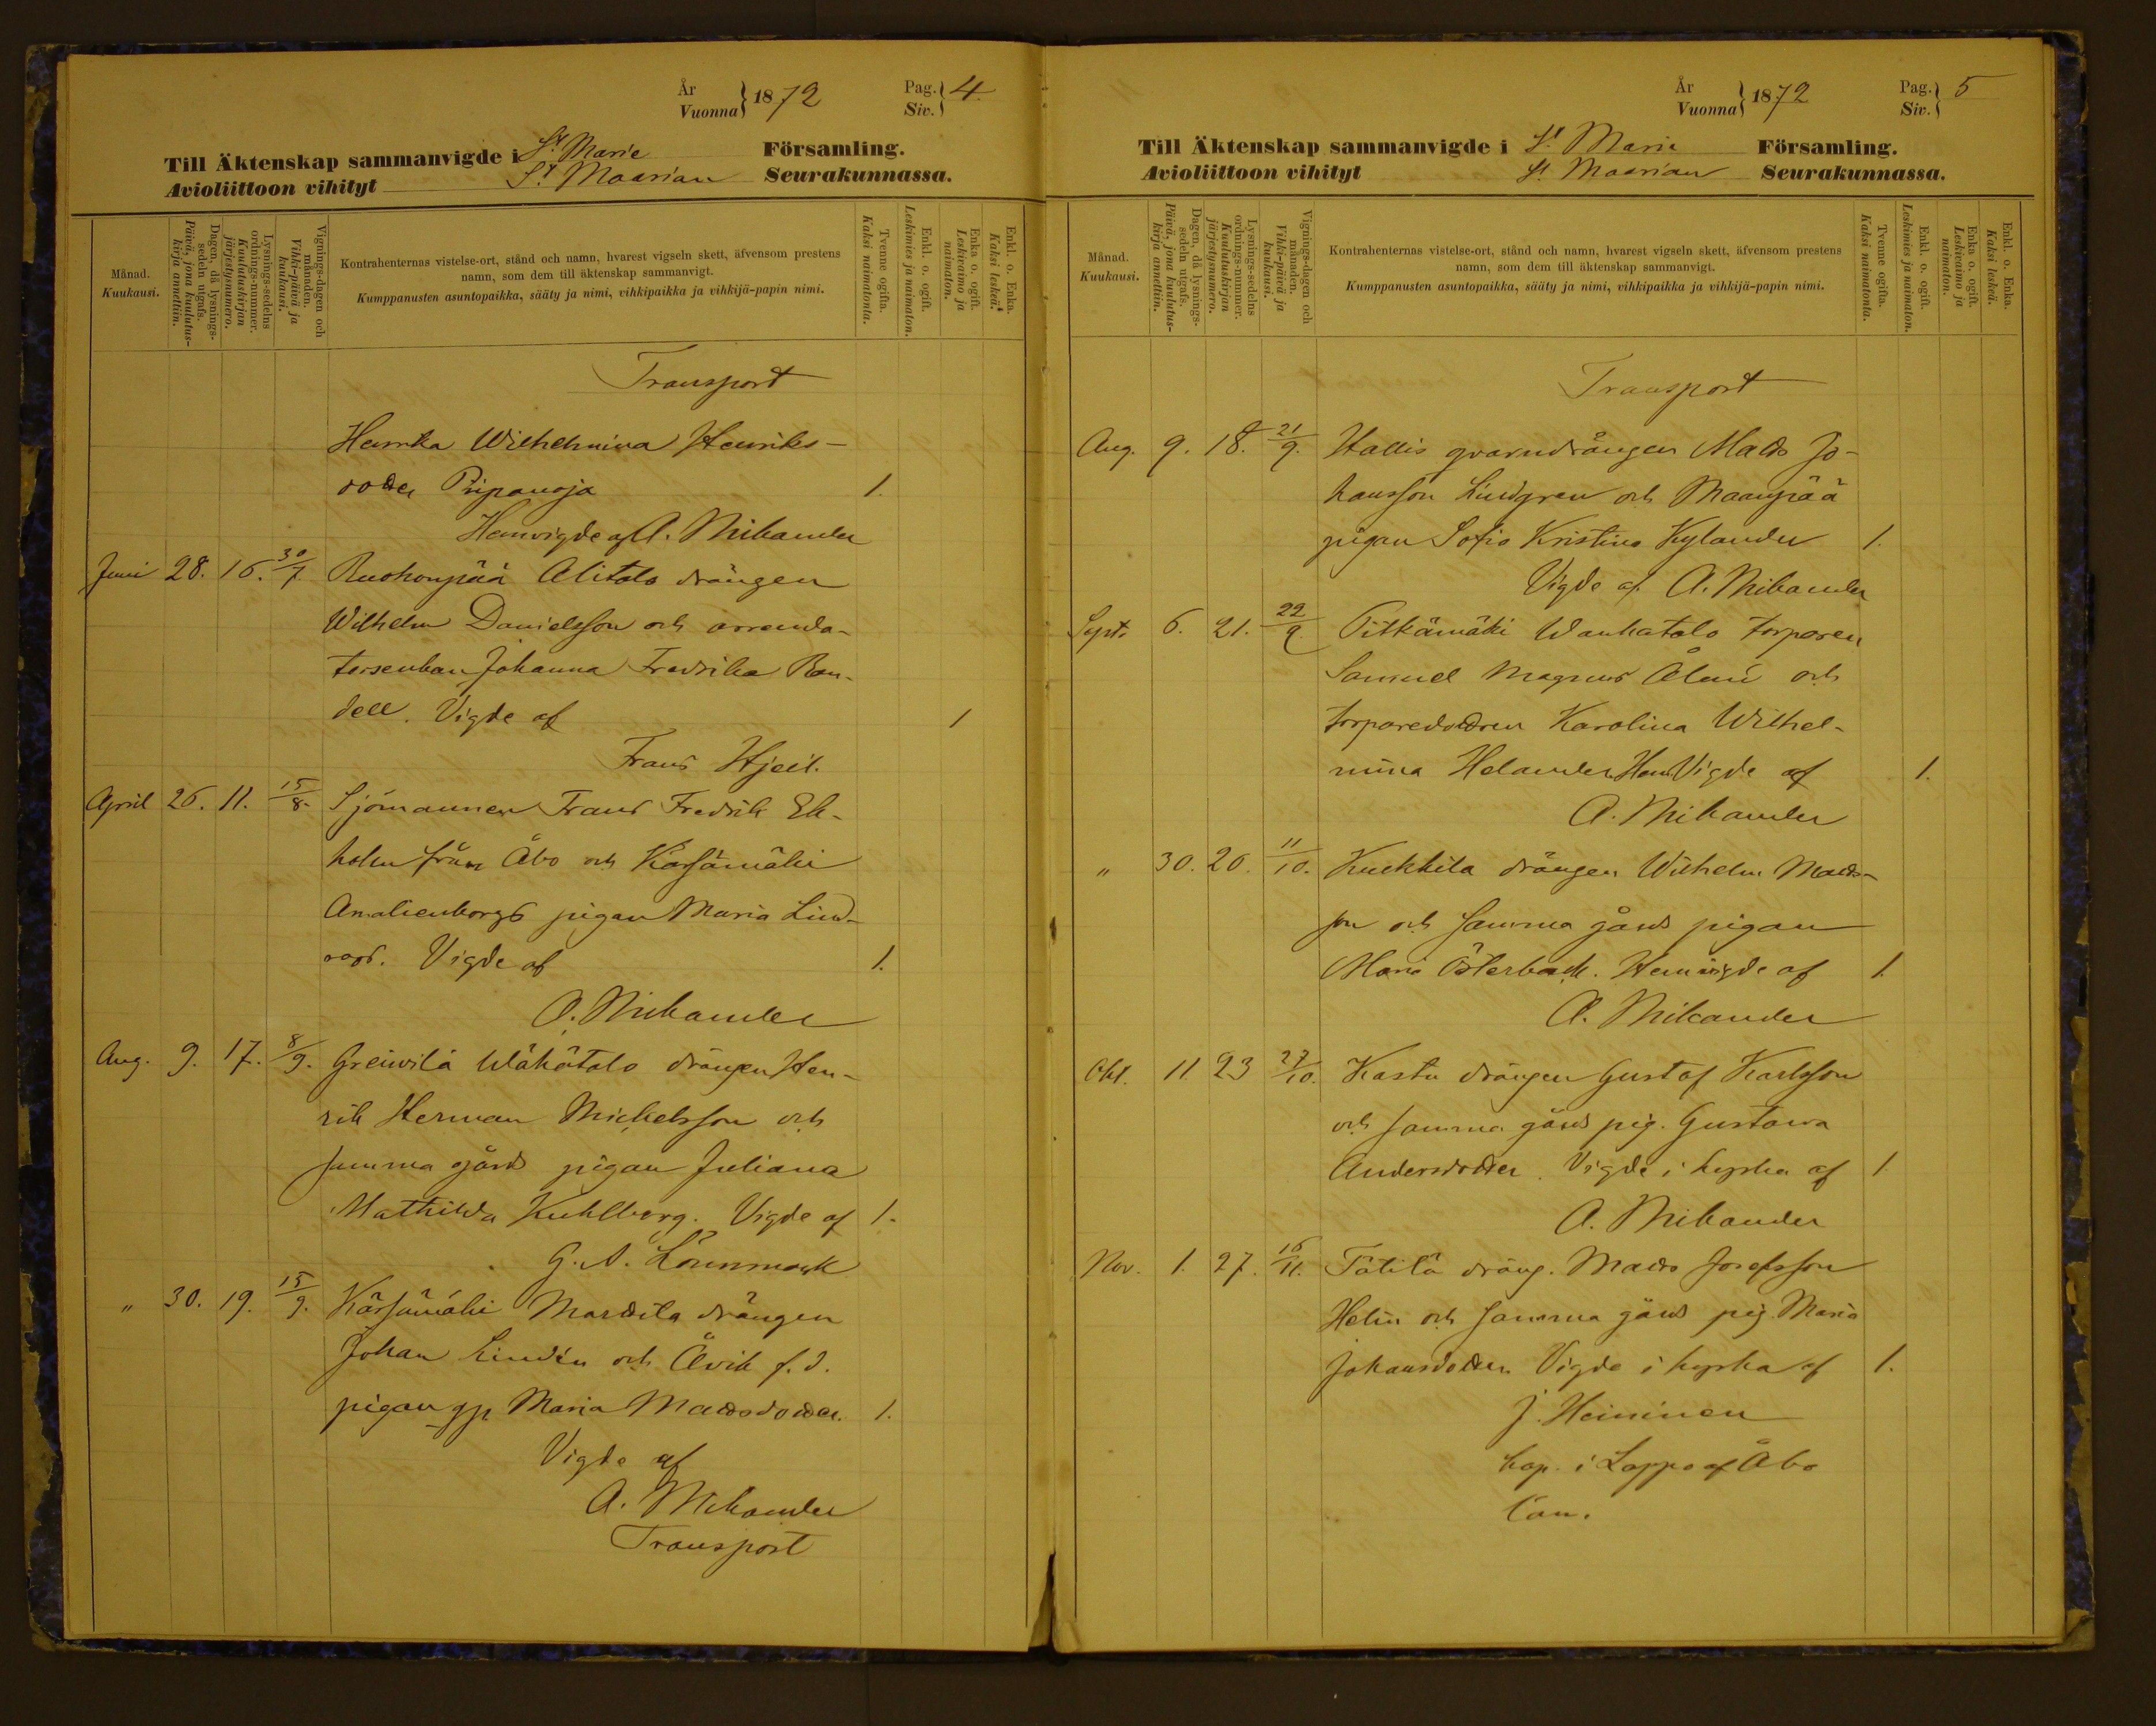 År
Vuonna } 1872
Pag.
Siv. } 4.
Till Äktenskap sammanvigde i St Marie Församling.
Avioliittoon vihityt St Maarian Seurakunnassa.
Månad.
Kuukausi.
Dagen, då lysnings-
sedeln utgafs.
Päivä, jona kuulutus-
kirja annettiin.
Lysnings-sedelns
ordnings-nummer.
Kuulutuskirjan
järjestysnumero.
Vignings-dagen och
månaden.
Vihki-päivä ja
kuukausi.
Kontrahenternas vistelse-ort, stånd och namn, hvarest vigseln skett, äfvensom prestens
namn, som dem till äktenskap sammanvigt.
Kumppanusten asuntopaikka, sääty ja nimi, vihkipaikka ja vihkijä-papin nimi.
Tvenne ogifta.
Kaksi naimatonta.
Enkl. o. ogift.
Leskimies ja naimaton.
Enka o. ogift.
Leskivaimo ja
naimaton.
Enkl. o. Enka.
Kaksi leskeä.
Transport
Henrika Wilhelmina Henriks-
dotter Piipanoja 1.
Hemvigde af A. Mikander
Juni 28. 16. 30/7. Ruohonpää Alitalo drängen
Wilhelm Danielsson och arrenda-
torsenkan Johanna Fredrika Ran-
dell. Vigde af 1
Frans Hjelt.
April 26. 11. 15/8. Sjömannen Frans Fredrik Ek-
holm från Åbo och Kärsämäki
Amalienborgs pigan Maria Lind-
roos. Vigde af 1.
A. Mikander
Aug. 9. 17. 8/9. Greiwilä Wähätalo drängen Hen-
rik Herman Michelsson och
samma gårds pigan Juliana
Mathilda Kuhlberg. Vigde af 1.
G. A. Lönnmark
" 30. 19. 15/9. Kärsämäki Marttila drängen
Johan Lindén och Älvik f. d.
pigan Maria Mattsdotter. 1.
Vigde af
A. Mikander
Transport
År
Vuonna } 1872
Pag.
Siv. } 5
Till Äktenskap sammanvigde i St Marie Församling.
Avioliittoon vihityt St Maarian Seurakunnassa.
Månad.
Kuukausi.
Dagen, då lysnings-
sedeln utgafs.
Päivä, jona kuulutus-
kirja annettiin.
Lysnings-sedelns
ordnings-nummer.
Kuulutuskirjan
järjestysnumero.
Vignings-dagen och
månaden.
Vihki-päivä ja
kuukausi.
Kontrahenternas vistelse-ort, stånd och namn, hvarest vigseln skett, äfvensom prestens
namn, som dem till äktenskap sammanvigt.
Kumppanusten asuntopaikka, sääty ja nimi, vihkipaikka ja vihkijä-papin nimi.
Tvenne ogifta.
Kaksi naimatonta.
Enkl. o. ogift.
Leskimies ja naimaton.
Enka o. ogift.
Leskivaimo ja
naimaton.
Enkl. o. Enka.
Kaksi leskeä.
Transport
Aug. 9. 18. 21/9. Hallis qvarndrängen Matts Jo-
hansson Lindgren och Maanpää
pigan Sofia Kristina Kylander 1.
Vigde af A. Mikander
Sept. 6. 21. 22/9. Pitkämäki Wanhatalo torparen
Samuel Magnus Ålen och
torparedottren Karolina Wilhel-
mina Helander Hem Vigde af 1.
A. Mikander
" 30. 20. 11/10. Kuckkila drängen Wilhelm Matts-
son och samma gårds pigan
Maria Österback. Hemvigde af 1.
A. Mikander
Okt. 11 23 27/10. Kastu drängen Gustaf Karlsson
och samma gårds pig. Gustava
Andersdotter. Vigde i kyrka af 1
A. Mikander
Nov. 1. 27. 16/11. Tätilä dräng. Matts Josefsson
Helin och samma gårds pig. Maria
Johansdotter. Vigde i kyrka af 1.
J. Heininen
kap. i Lappo af Åbo
län.